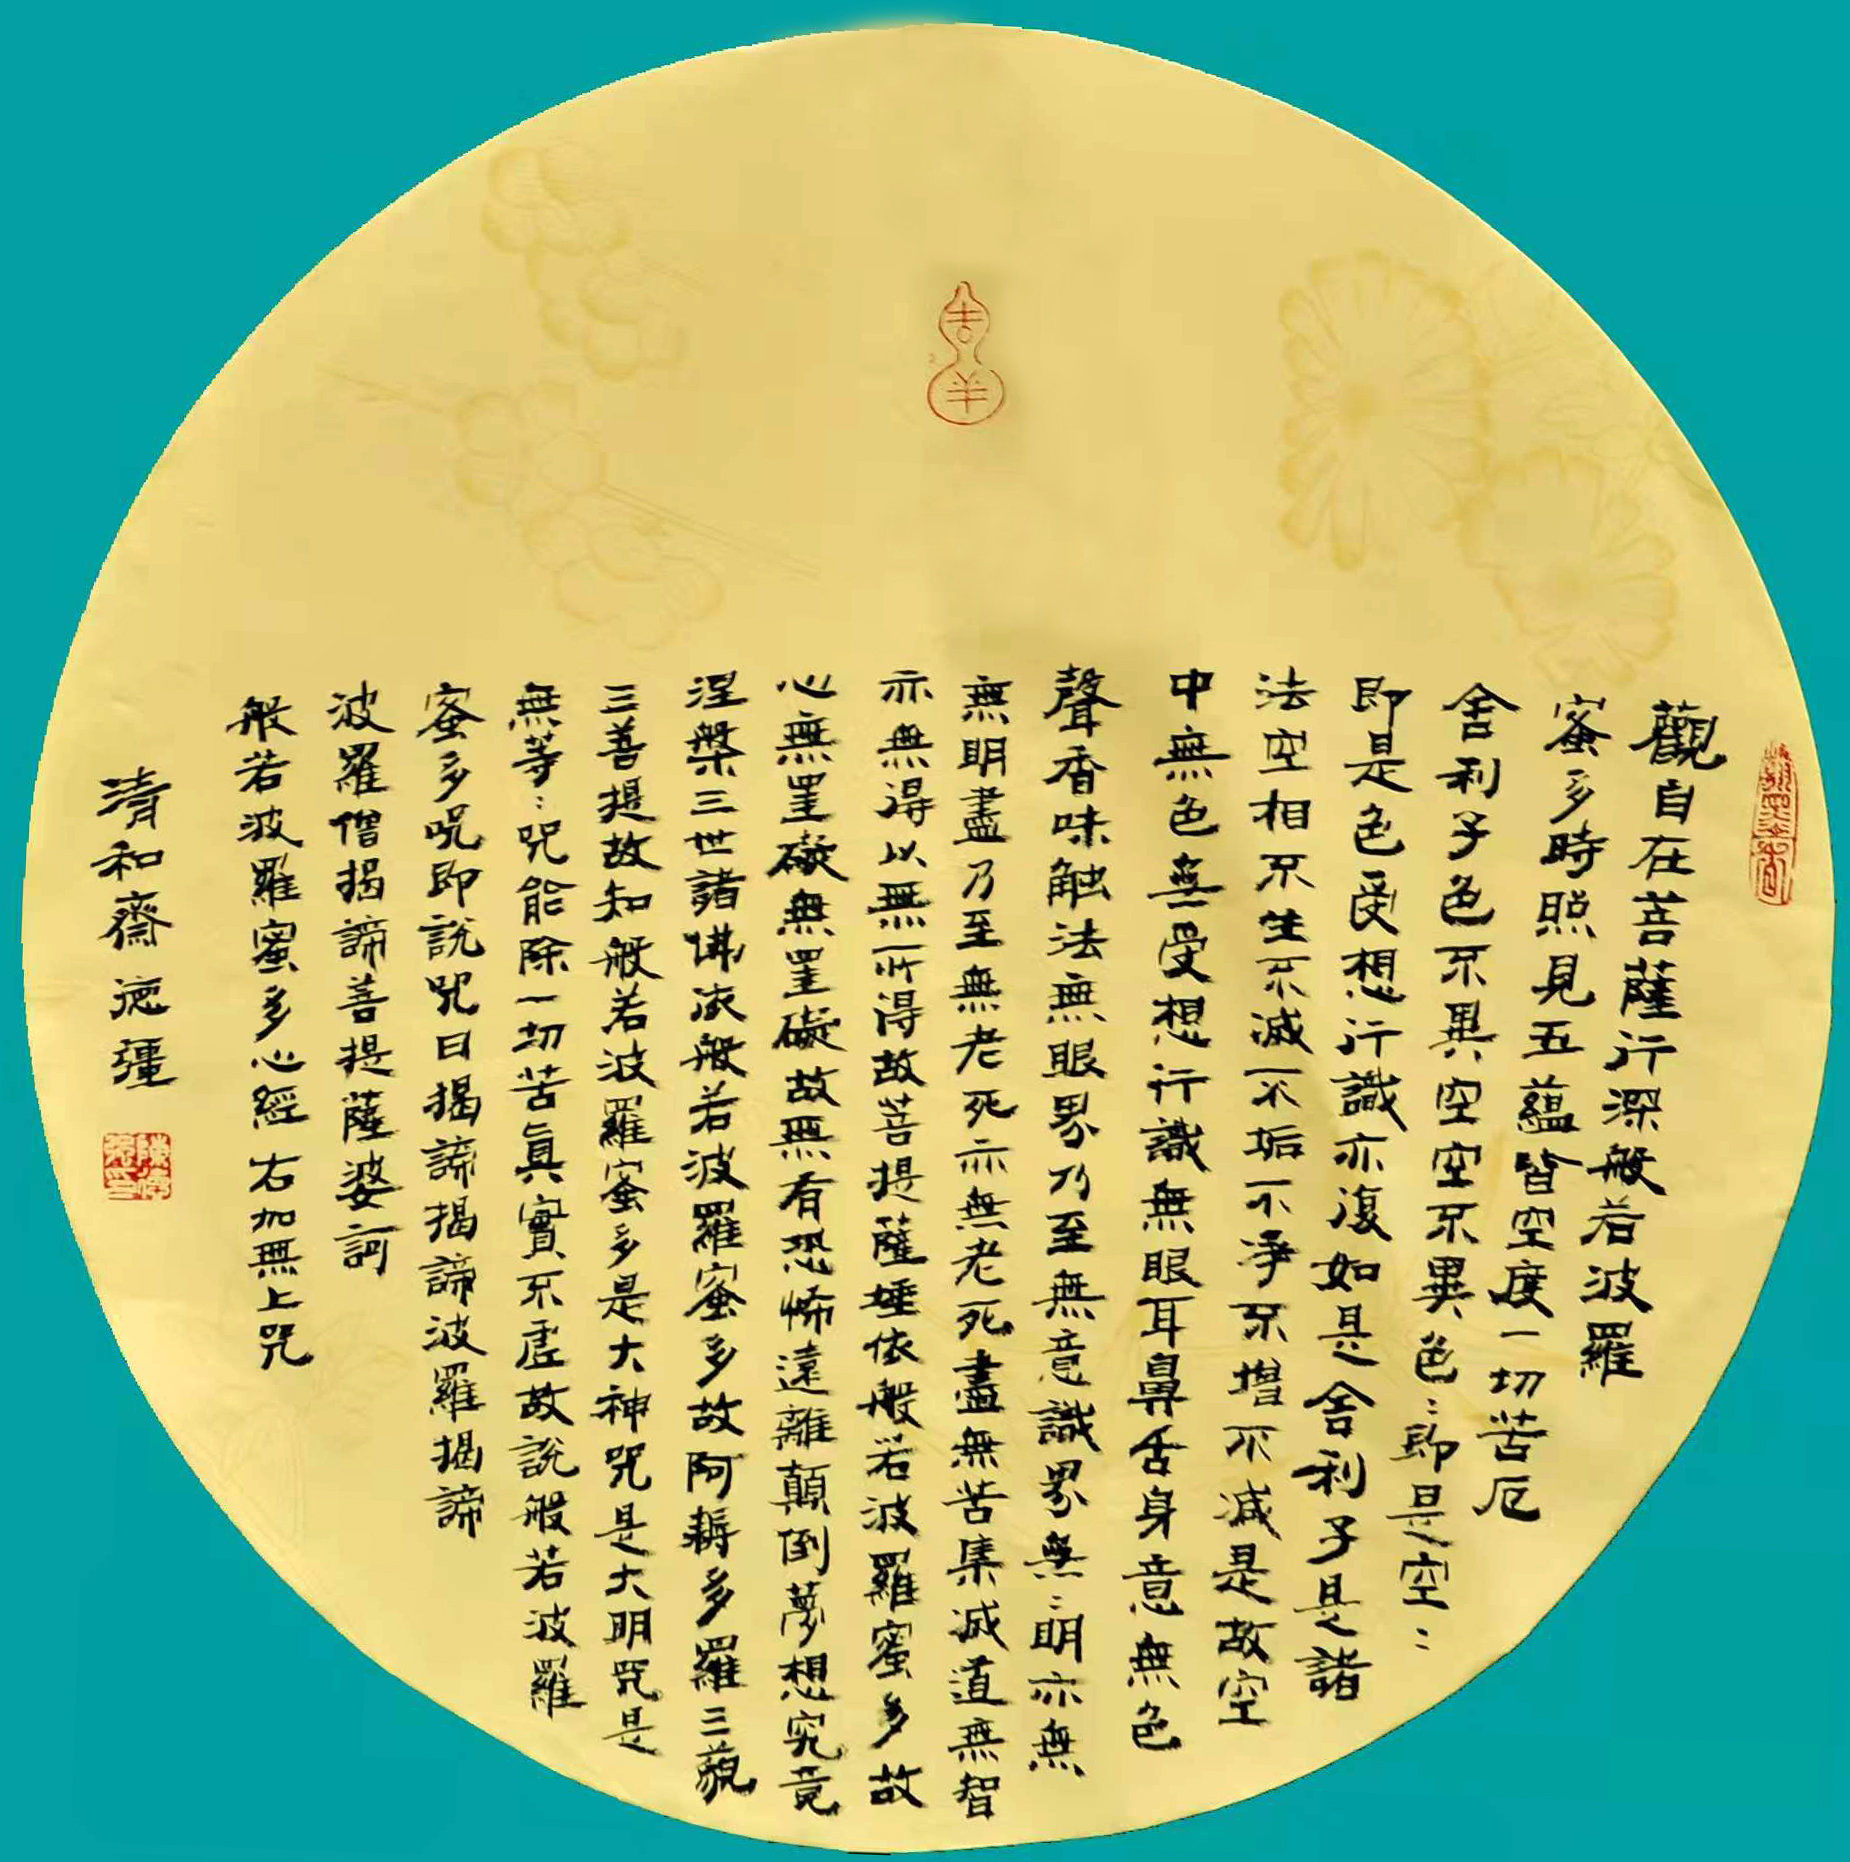 觀自在菩薩行深般若波羅
蜜多時照見五蘊皆空度一切苦厄
舍利子色不異空空不異色:即是空:
即是色受想行識亦復如是舍利子是諸
法空相不生不滅不垢不淨不增不減是故空
中無色無受想行識無眼耳鼻舌身意無色
聲香味触法無眼界乃至無意識界無:明亦無
無明盡乃至無老死亦無老死盡無苦集滅道無智
亦無得以無所得故菩提薩埵依般若波羅蜜多故
心無罣礙無罣礙故無有恐怖遠離顛倒夢想究竟
涅槃三世諸佛依般若波羅蜜多故阿耨多羅三藐
三菩提故知般若波羅蜜多是大神咒是大明咒是
無等:咒能除一切苦真實不虛故說般若波羅
蜜多咒即說咒曰揭諦揭諦波羅揭諦
波羅僧揭諦菩提薩婆訶
般若波羅蜜多心經 右加無上咒
清和齋 德彊
吉羊